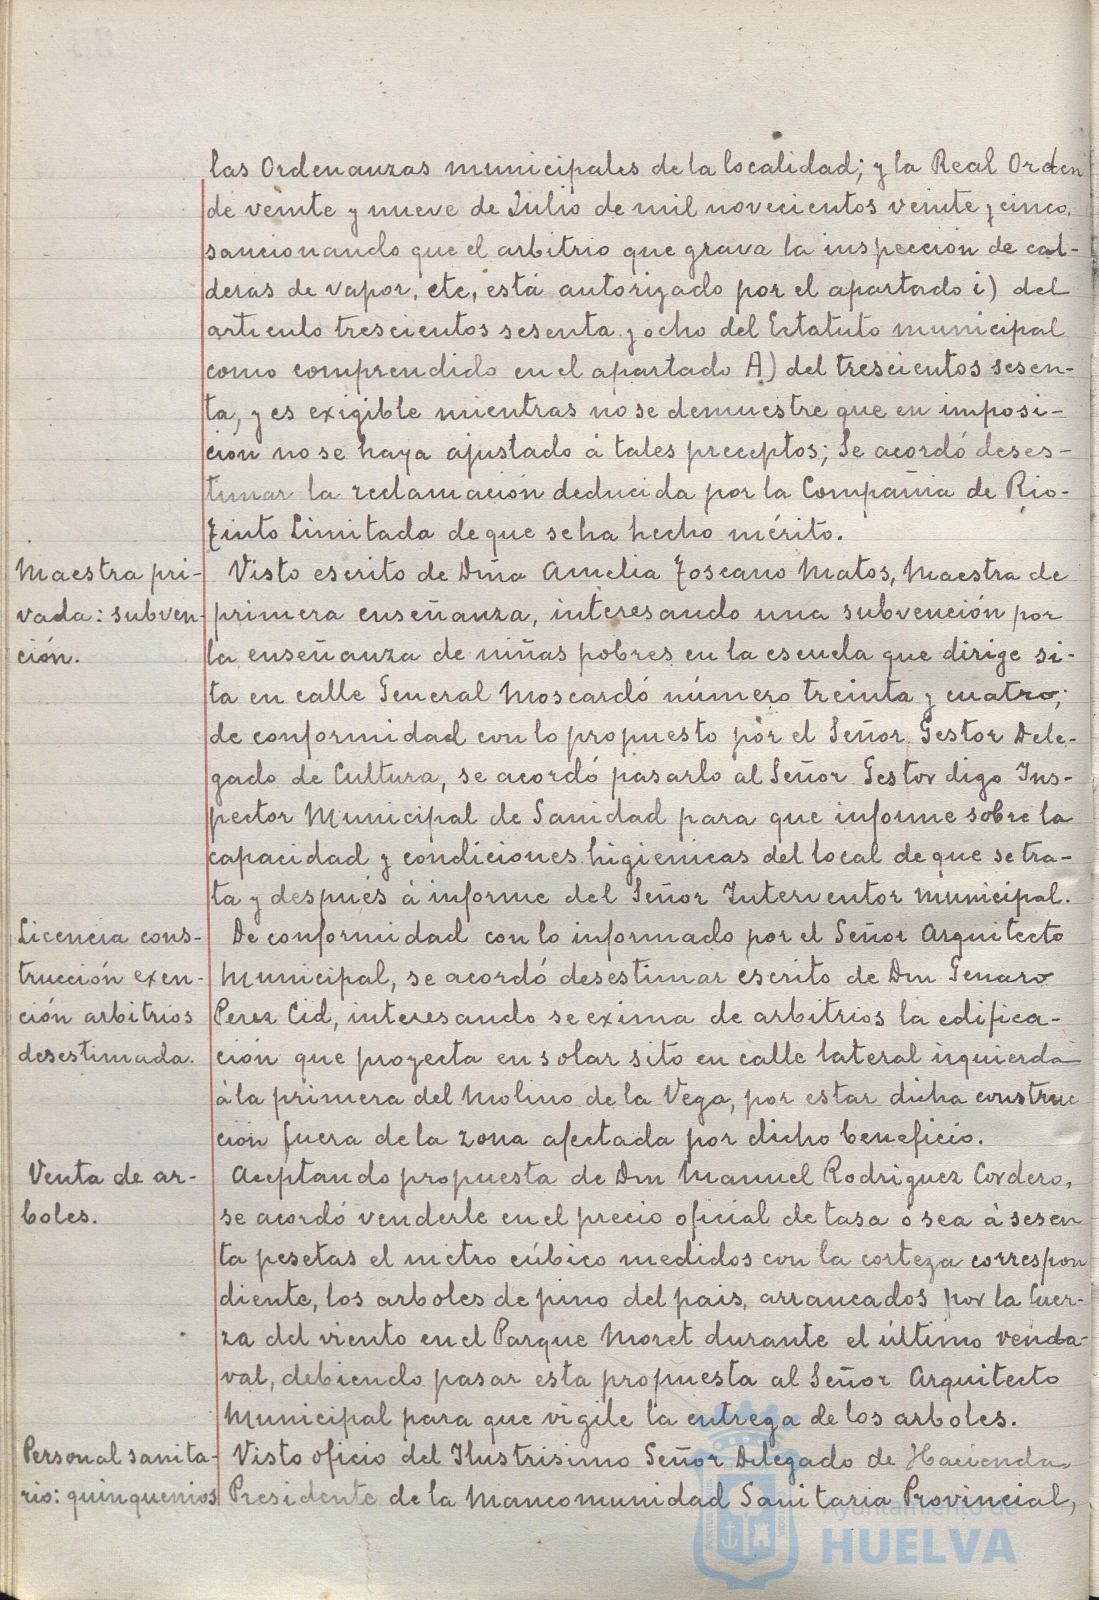 las Ordenanzas municipales de la localidad; y la Real Orden
de veinte y nueve de Julio de mil novecientos veinte y cinco,
sancionando que el arbitrio que grava la inspección de cal-
deras de vapor, etc, está autorizado por el apartado i) del
articulo trescientos sesenta y ocho del Estatuto municipal
como comprendido en el apartado A) del trescientos sesen-
ta, y es exigible mientras no se demuestre que en imposi-
ción no se haya ajustado á tales preceptos; Se acordó deses-
timar la reclamación deducida por la Compañia de Rio-
Tinto Limitada de que se ha hecho mérito.
Maestra pri-
vada: subven-
ción.
Visto escrito de Dña Amelia Toscano Matos, Maestra de
primera enseñanza, interesando una subvención por
la enseñanza de niñas pobres en la escuela que dirige si-
ta en calle General Moscardó número treinta y cuatro;
de conformidad con lo propuesto por el Señor Gestor Dele-
gado de Cultura, se acordó pasarlo al Señor Gestor digo Ins-
pector Municipal de Sanidad para que informe sobre la
capacidad y condiciones higienicas del local de que se tra-
ta y después á informe del Señor Interventor municipal.
Licencia cons-
trucción exen-
ción arbitrios
desestimada.
De conformidad con lo informado por el Señor Arquitecto
Municipal, se acordó desestimar escrito de Dn Genaro
Perez Cid, interesando se exima de arbitrios la edifica-
ción que proyecta en solar sito en calle lateral izquierda
á la primera del Molino de la Vega, por estar dicha construc
ción fuera de la zona afectada por dicho beneficio.
Venta de ar-
boles.
Aceptando propuesta de Dn Manuel Rodriguez Cordero,
se acordó venderle en el precio oficial de tasa ó sea á sesen
ta pesetas el metro cúbico medidos con la corteza correspon
diente, los arboles de pino del pais, arrancados por la fuer-
za del viento en el Parque Moret durante el último venda-
val, debiendo pasar esta propuesta al Señor Arquitecto
Municipal para que vigile la entrega de los arboles.
Personal sanita-
rio: quinquenios
Visto oficio del Ilustrisimo Señor Delegado de Hacienda,
Presidente de la Mancomunidad Sanitaria Provincial,
Ayuntamiento de
HUELVA